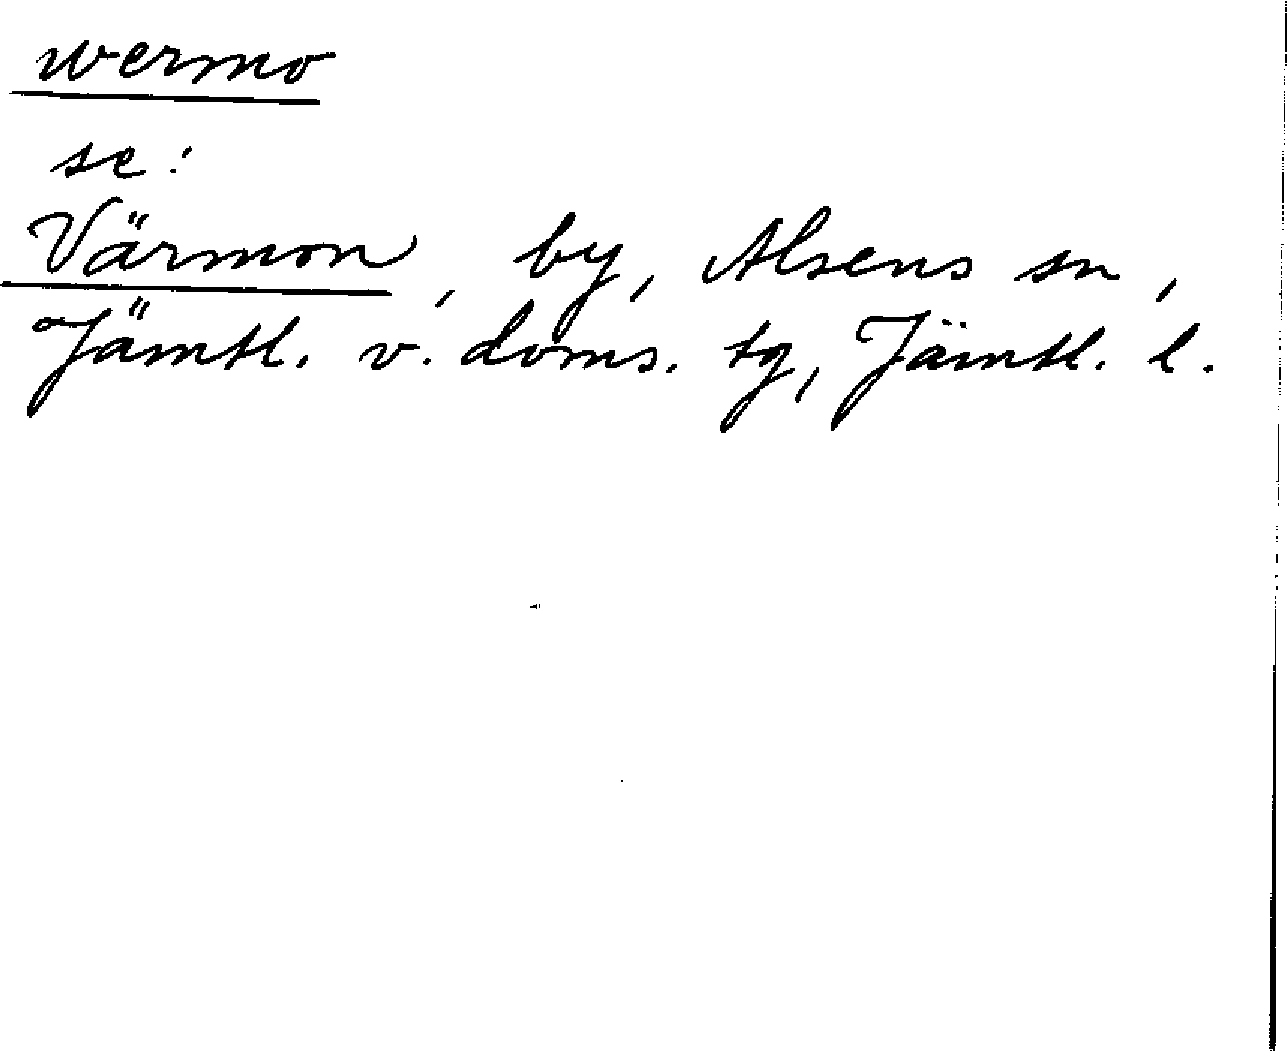 wermo
se:
Värmon, by, Alsens sn,
Jämtl. v. doms. tg, Jämtl. l.